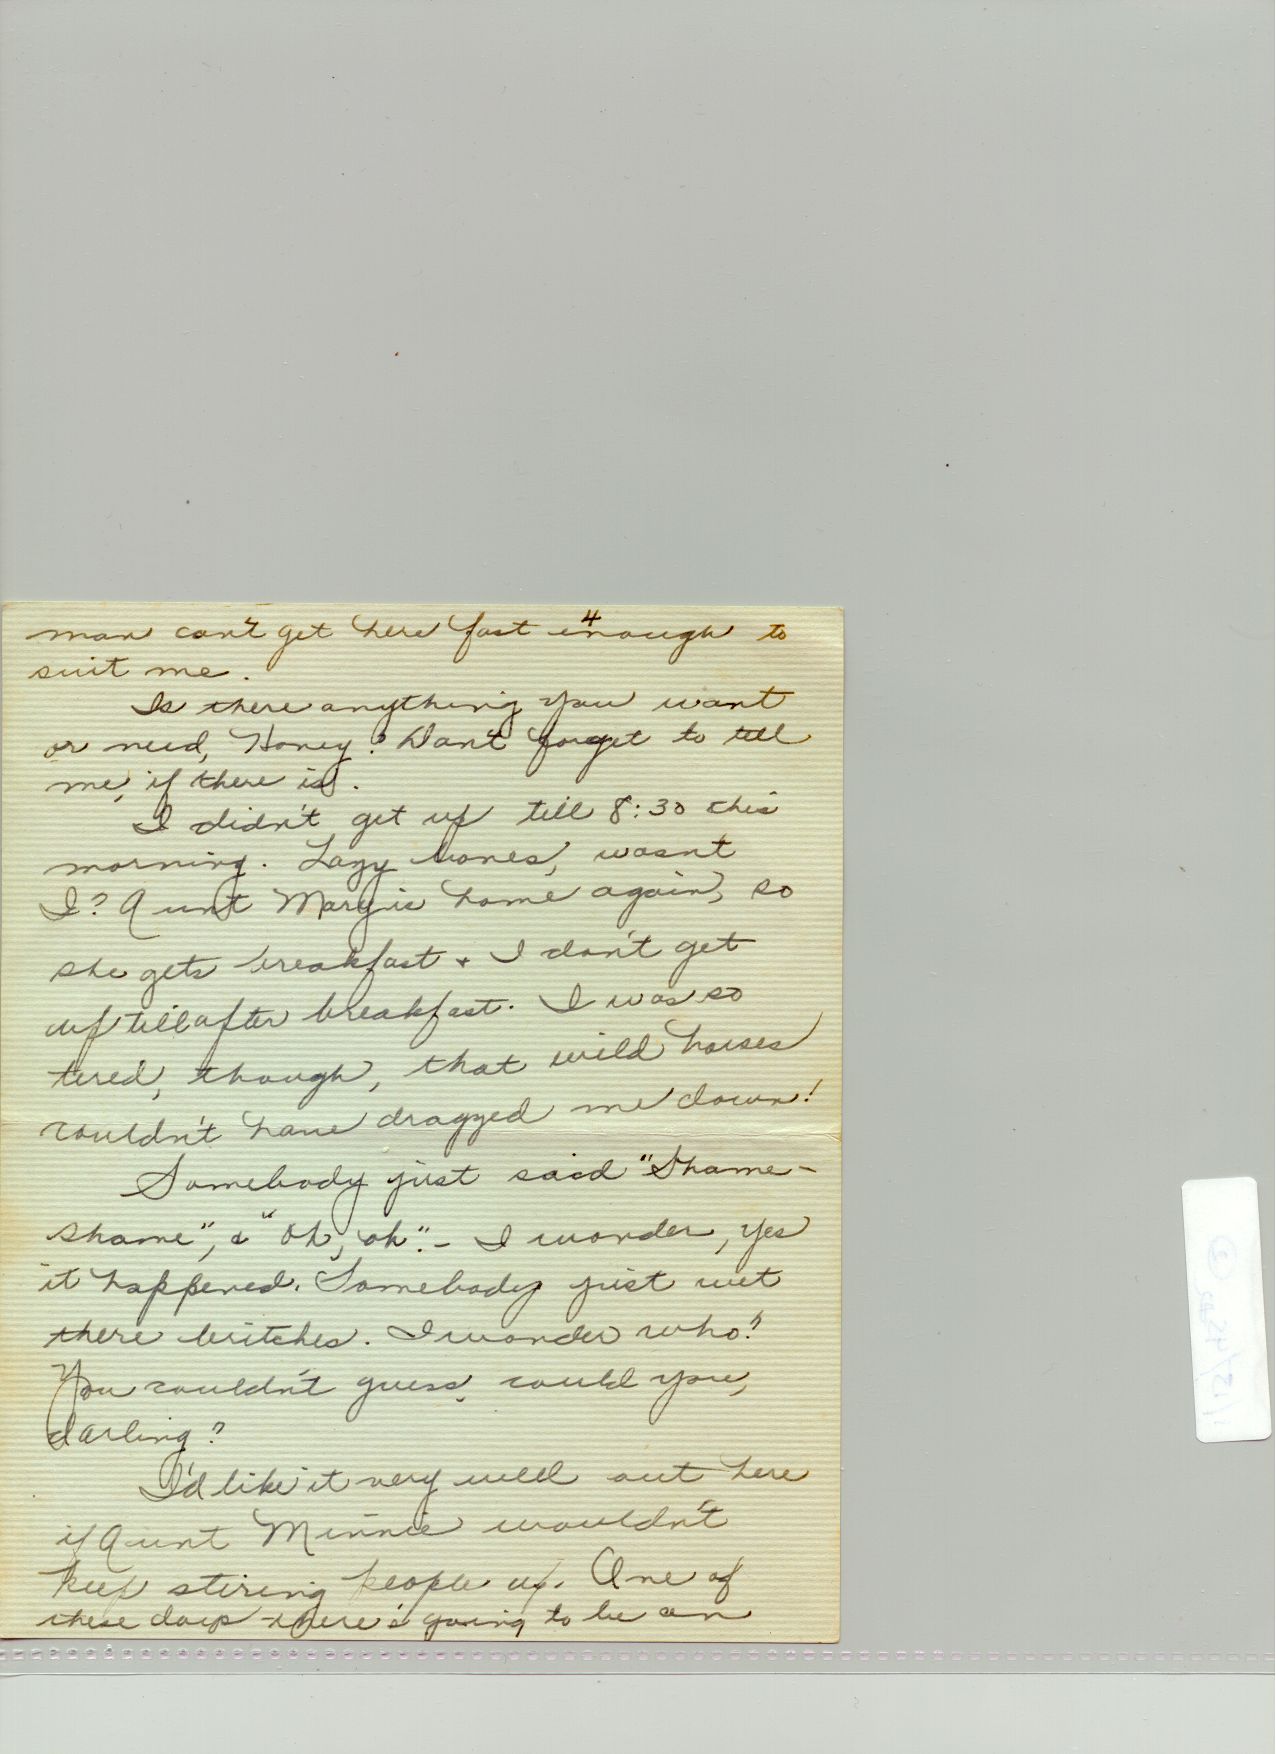 4
man can't get here fast enough to
suit me.
Is there anything you want
or need, Honey? Don't forget to tell
me, if there is.
I didn't get up till 8:30 this
morning. Lazy bones, wasn't
I? Aunt Mary is home again, so
she gets breakfast + I don't get
up till after breakfast. I was so
tired, though, that wild horses
couldn't have dragged me down!
Somebody just said "Shame-
shame", & "oh, oh". - I wonder, yes
it happened. Somebody just wet
there britches. I wonder who?"
You couldn't guess, could you,
darling?
I'd like it very well out here
if Aunt Minnie wouldn't
keep stiring people up. One of
these days there's going to be an